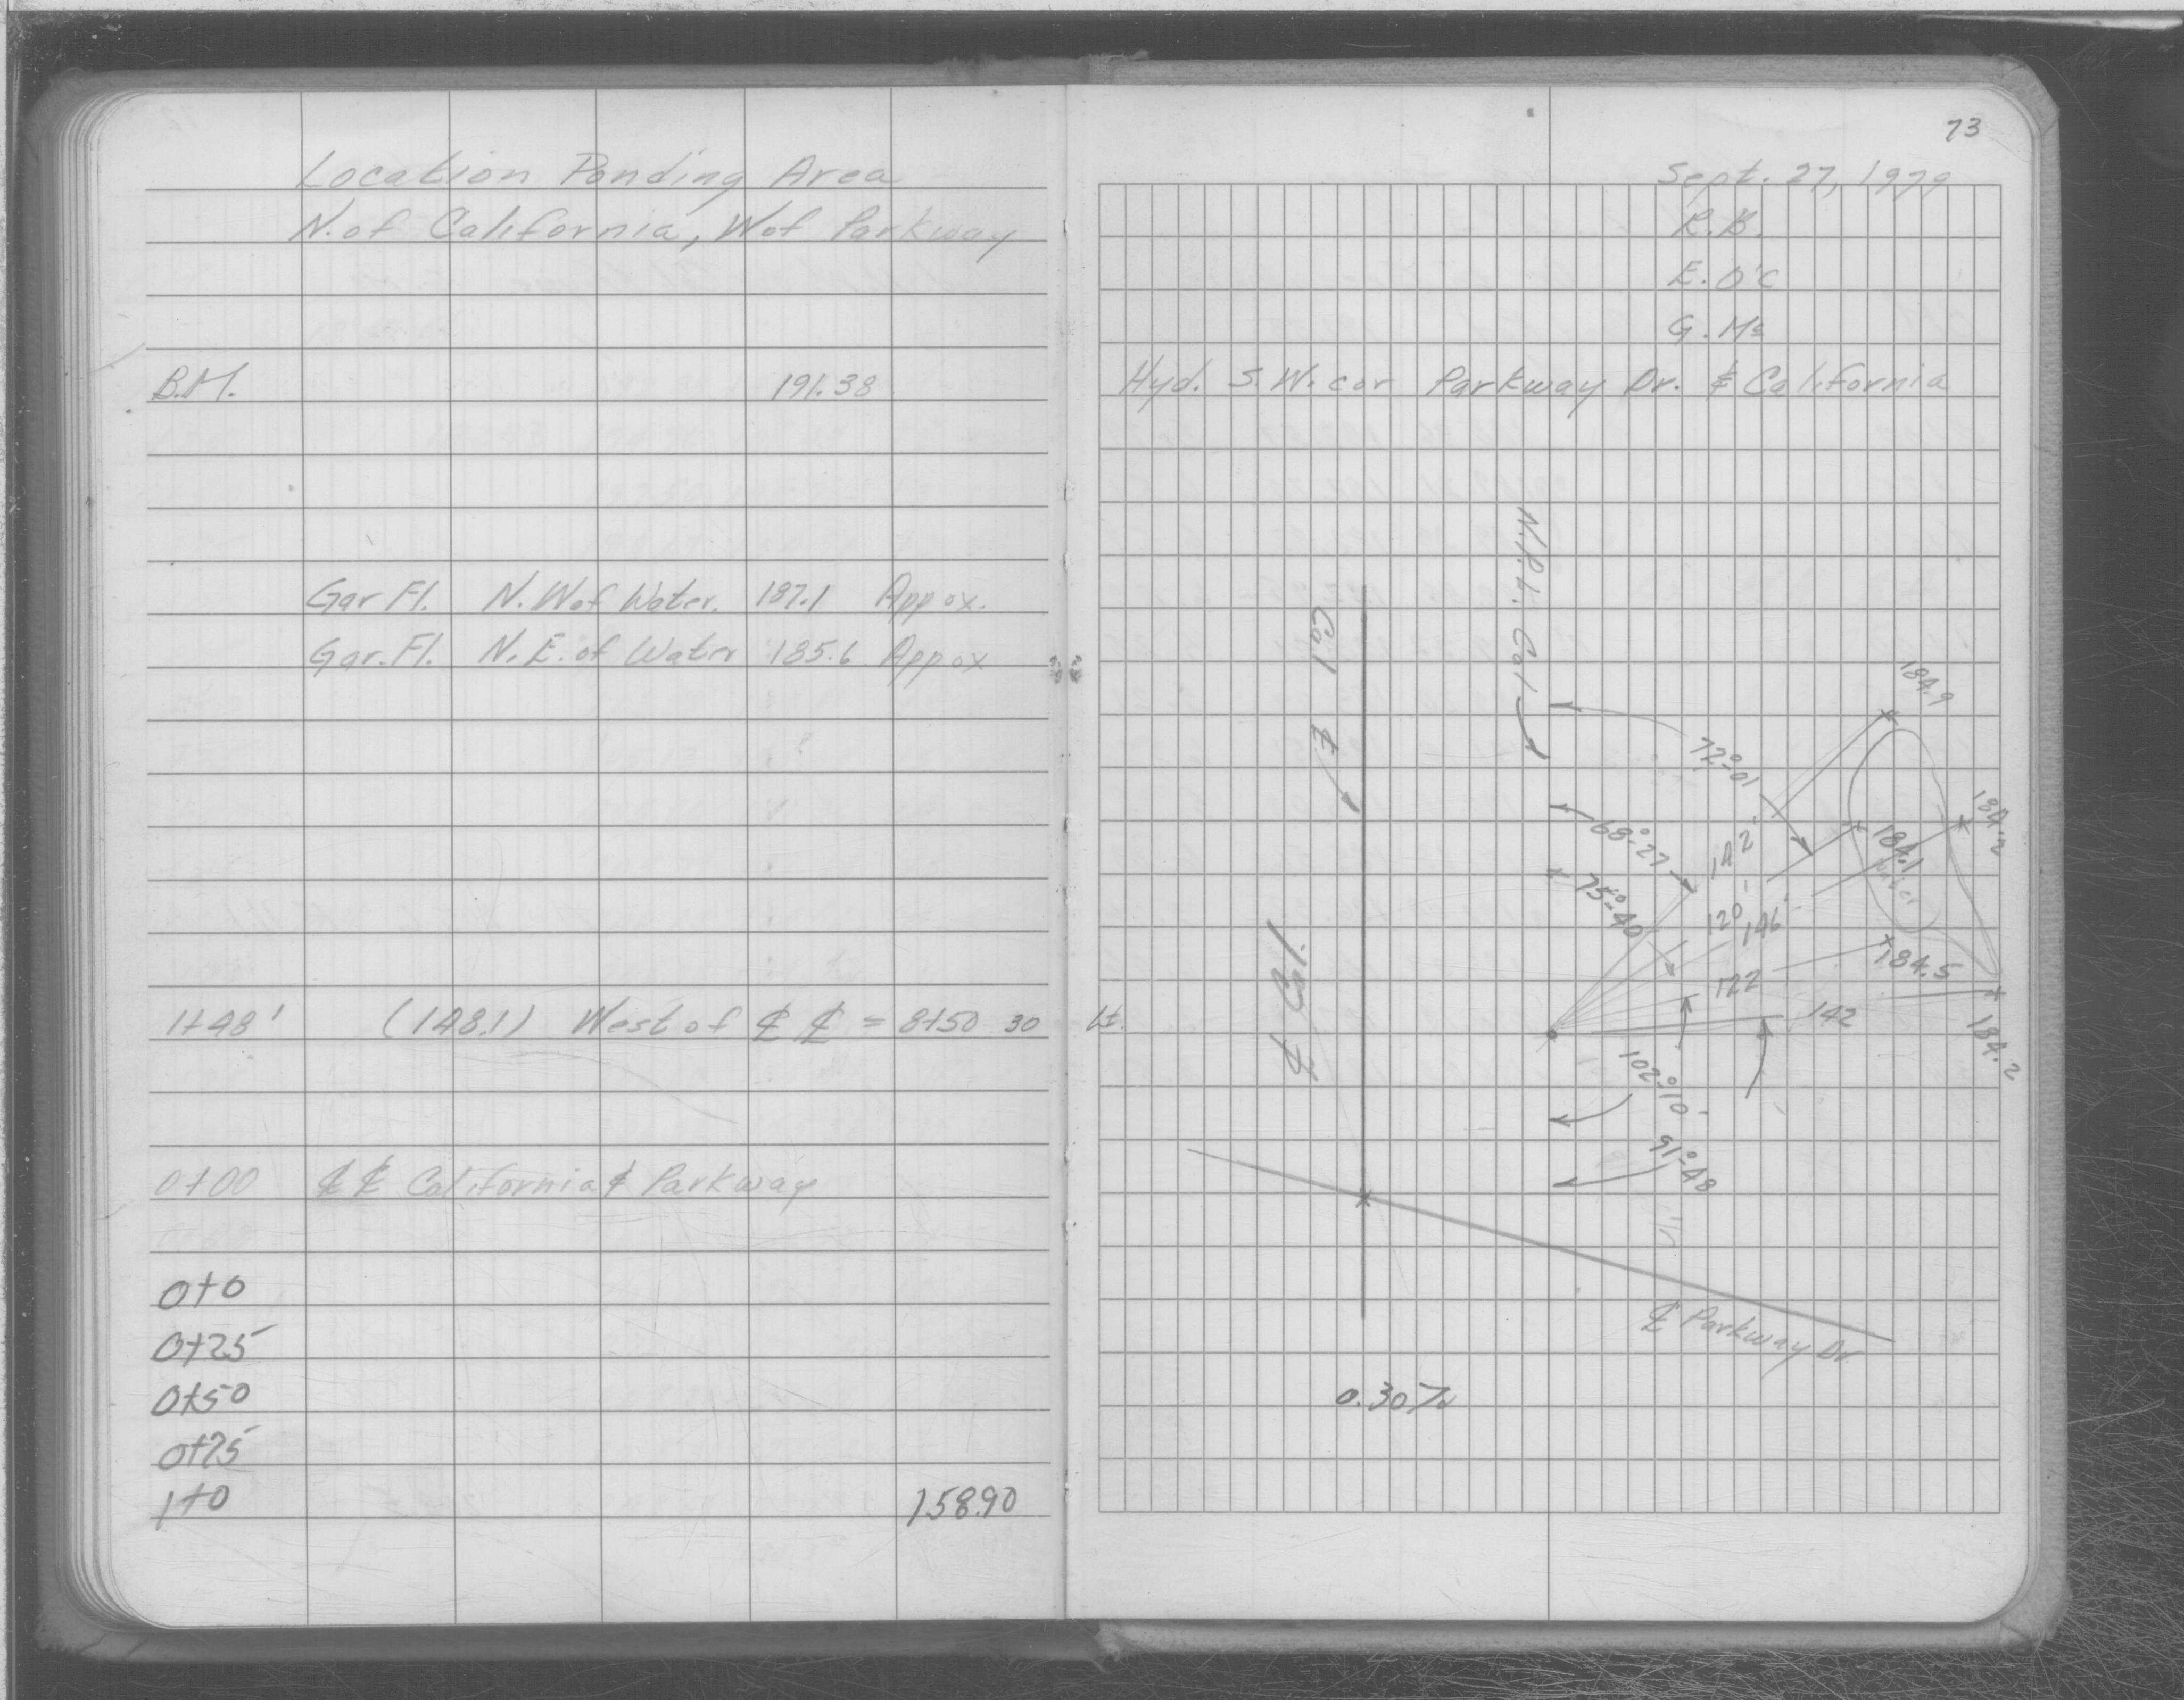 Location Ponding Area
N. of California, W of Parkway
B.M. 191.38
Gar Fl. N. W of Water. 187.1 Appox.
Gar. Fl. N. E. of Water 185.6 Appox
1+48' (148.1) West of ℄ ℄ = 8+50 30 Lt.
0+00 ℄ ℄ California & Parkway
0+0
0+25
0+50
0+75
1+0 158.90
73
Sept. 27, 1979
R.B.
E. O'C
G. Mc
Hyd. S.W. cor Parkway Dr. & California
N.P.L. Cal
Cal ℄
184.9
72°-01
184.2
68°-27
142'
184.1
water
75°-40
120'
146'
184.5
122
142
184.2
148.1
102°-10'
91°-48
℄ Parkway Dr.
0.30%